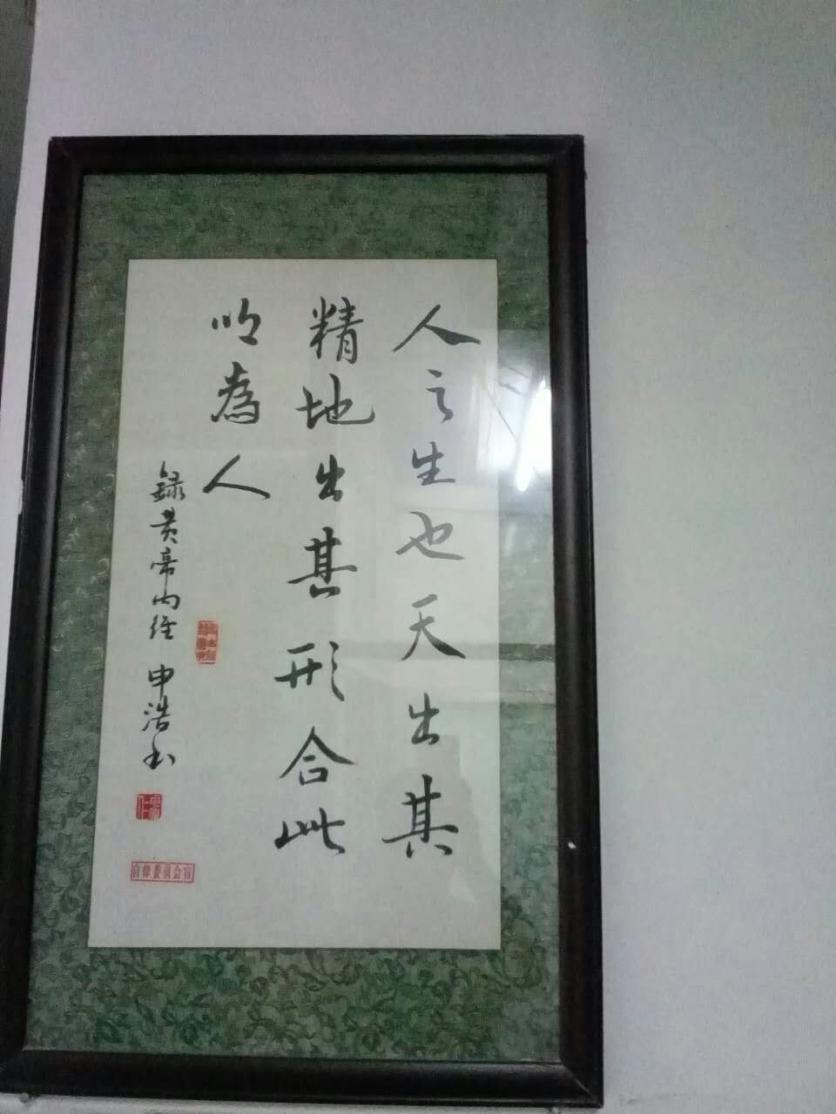 人之生也天出其
精地出其形合此
以為人
録黄帝内经 申浩书